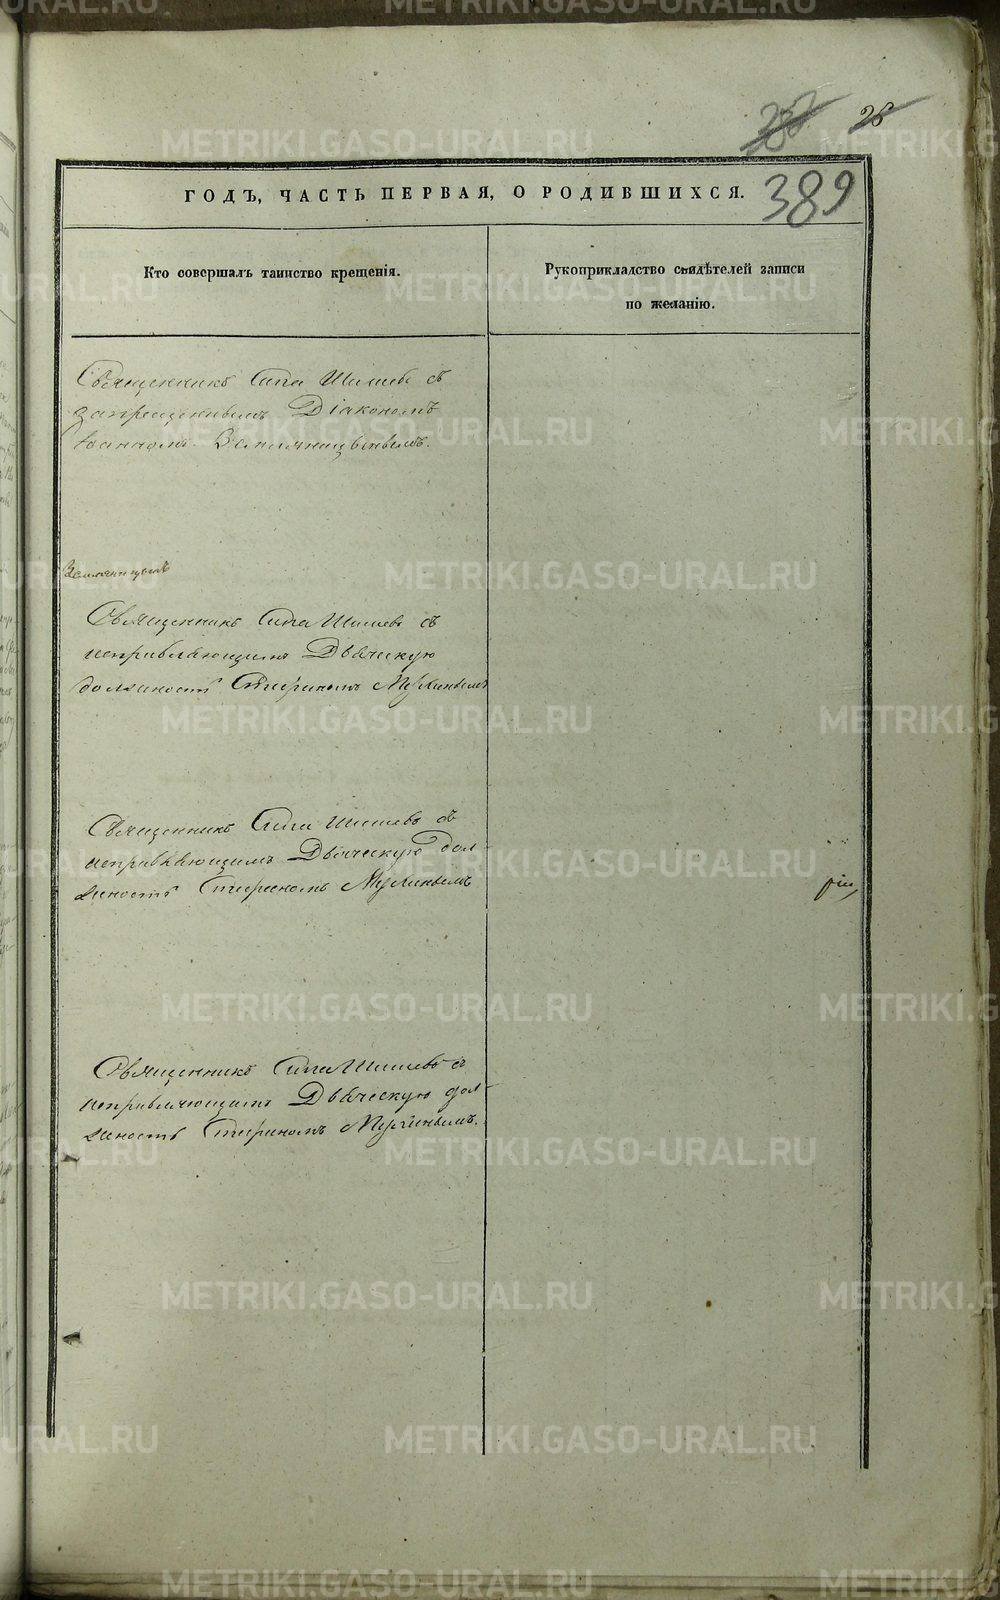 28
389
ГОДЪ, ЧАСТЬ ПЕРВАЯ, О РОДИВШИХСЯ.
Кто совершалъ таинство крещенія.
Рукоприкладство свидѣтелей записи
по желанію.
Священникъ Сила Шишевъ съ
запрещеннымъ Діакономъ
Іоанномъ Земляницынымъ.
Земляницынъ
Священникъ Сила Шишевъ съ
исправляющимъ Дьяческую
должность Мухинымъ
Священникъ Сила Шишевъ съ
исправляющимъ Дьяческую дол
жность Мухинымъ
Священникъ Сила Шишевъ съ
исправляющимъ Дьяческую дол
жность Мухинымъ.
METRIKI.GASO-URAL.RU